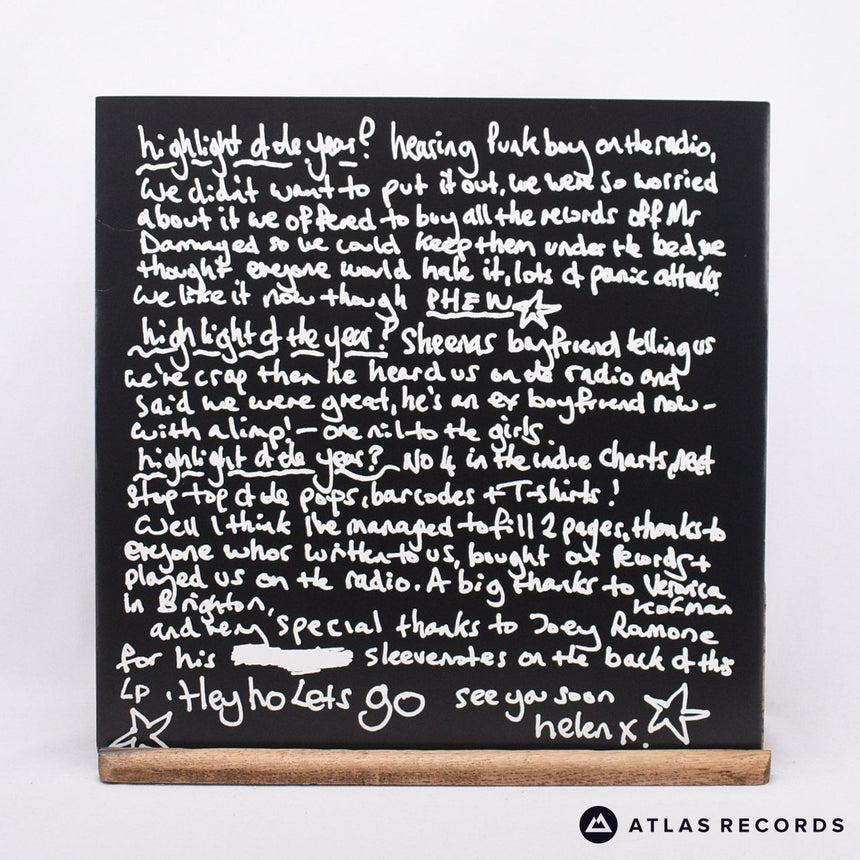 highlight of de year? hearing Punk boy on the radio,
we didn't want to put it out, we were so worried
about it we offered to buy all the records off Mr
Damaged so we could keep them under the bed, we
thought everyone would hate it, lots of panic attacks.
we like it now though PHEW
highlight of the year? Sheenas boyfriend telling us
we're crap then he heard us on de radio and
said we were great, he's an ex boyfriend now -
with a limp! - one nil to the girls.
highlight of de year? No 4 in the indie charts, next
stop top of de pops, barcodes + T-shirts!
Well I think I've managed to fill 2 pages, thanks to
everyone whos written to us, bought our records +
played us on the radio. A big thanks to Veronica
Kofman
in Brighton,
and very special thanks to Joey Ramone
for his sleevenotes on the back of this
LP. Hey ho Lets go see you soon
helen x.
ATLAS RECORDS